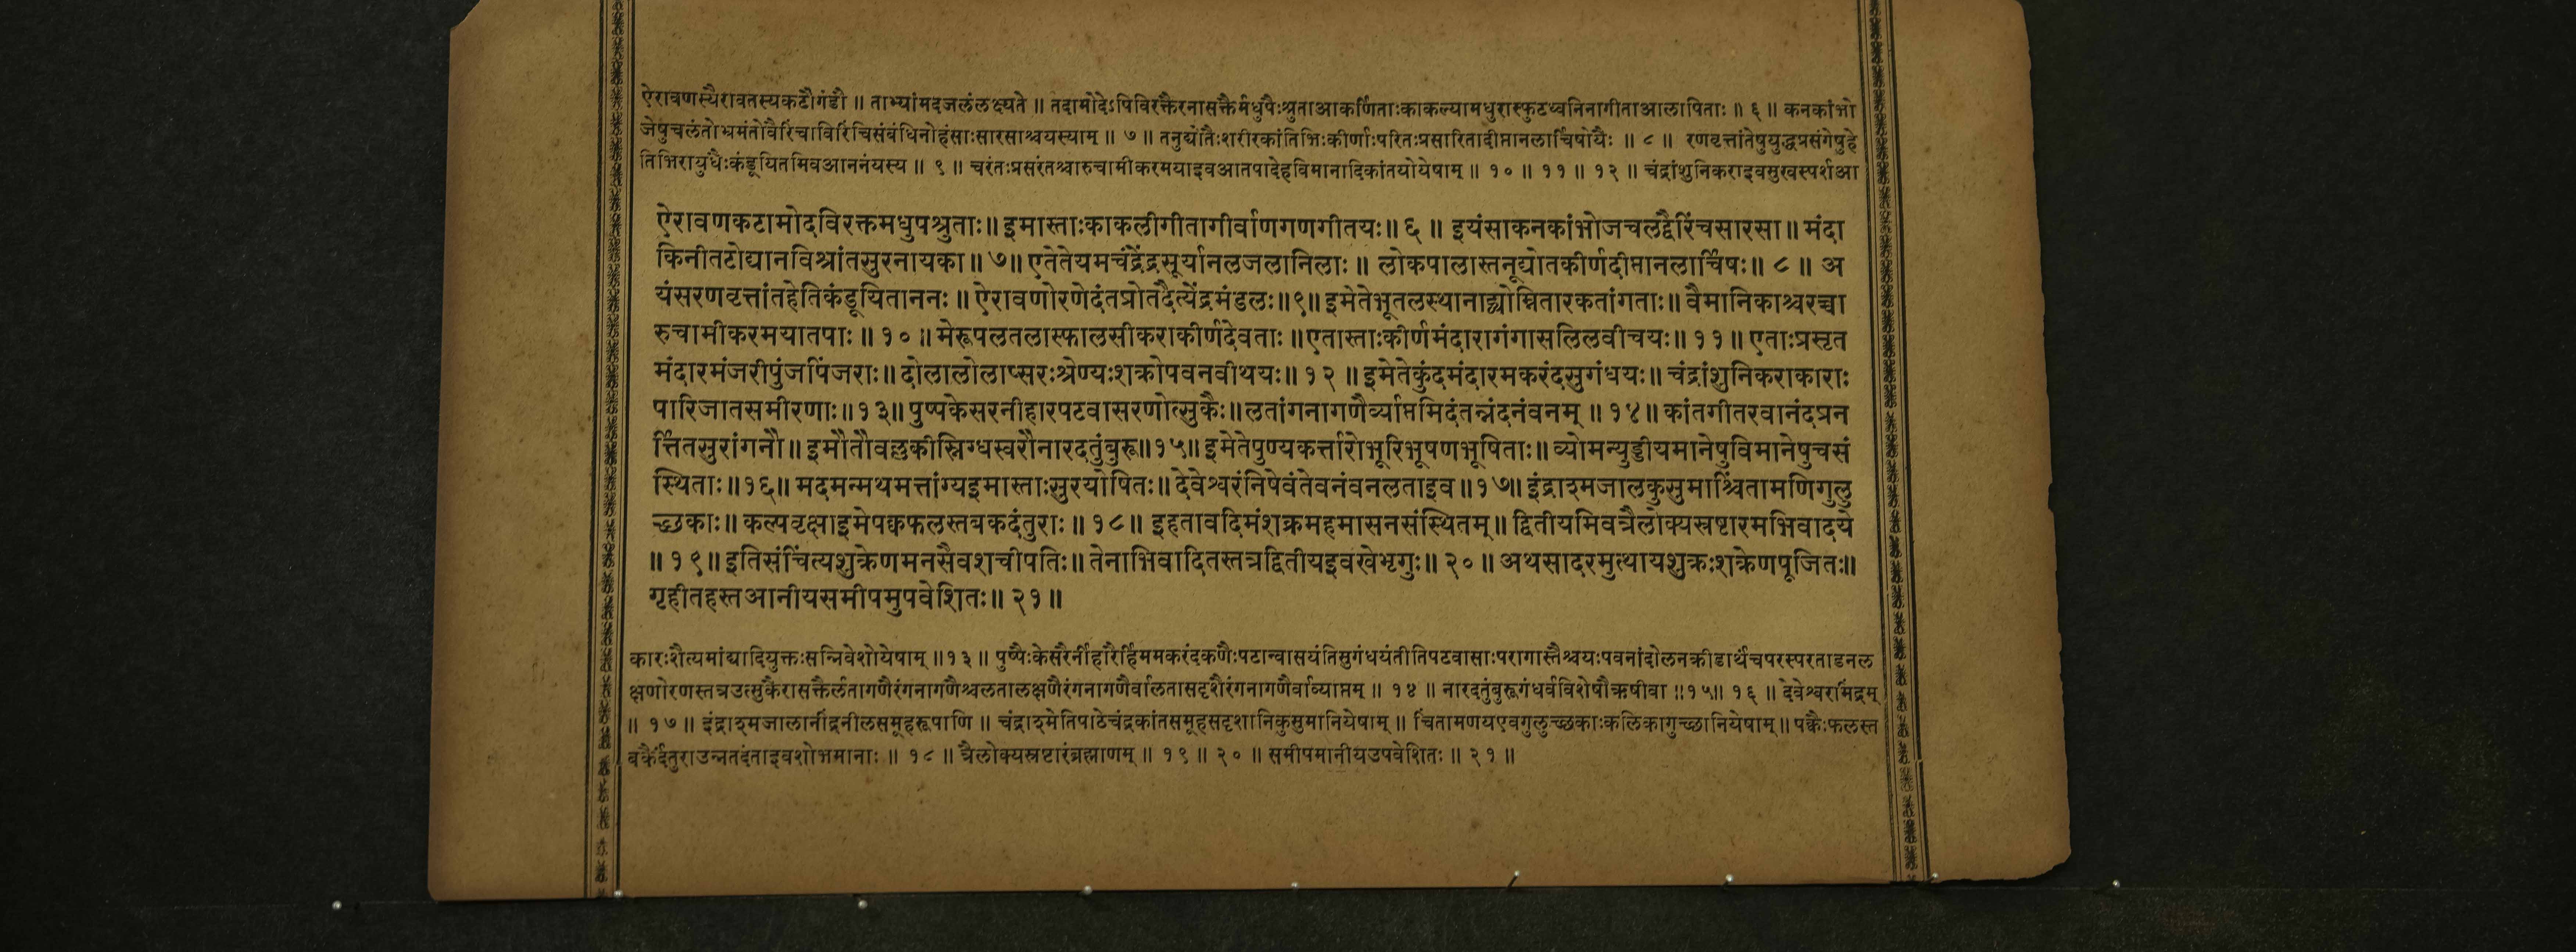 ऐरावणस्यैरावतस्यकटौगंडौ ॥ ताभ्यांमदजलंलक्ष्यते ॥ तदामोदेऽपिविरक्तैरनासक्तैर्मधुपैःश्रुताआकर्णिताःकाकल्यामधुरास्फुटध्वनिनागीताआलापिताः ॥ ६ ॥ कनकांभो
जेषुचलंतोभ्रमंतोवैरिंचाविरिंचिसंबंधिनोहंसाःसारसाश्चयस्याम् ॥ ७ ॥ तनुद्योतैःशरीरकांतिभिःकीर्णाःपरितःप्रसारितादीप्तानलार्चिषोयैः ॥ ८ ॥ रणवृत्तांतेषुयुद्धप्रसंगेषुहे
तिभिरायुधैःकंडूयितमिवआननंयस्य ॥ ९ ॥ चरंतःप्रसरंतश्चारुचामीकरमयाइवआतपादेहविमानादिकांतयोयेषाम् ॥ १० ॥ ११ ॥ १२ ॥ चंद्रांशुनिकराइवसुखस्पर्शआ
ऐरावणकटामोदविरक्तमधुपश्रुताः ॥ इमास्ताःकाकलीगीतागीर्वाणगणगीतयः ॥ ६ ॥ इयंसाकनकांभोजचलद्वैरिंचसारसा ॥ मंदा
किनीतटोद्यानविश्रांतसुरनायका ॥ ७ ॥ एतेतेयमचंद्रेंद्रसूर्यानलजलानिलाः ॥ लोकपालास्तनूद्योतकीर्णदीप्तानलार्चिषः ॥ ८ ॥ अ
यंसरणवृत्तांतहेतिकंडूयिताननः ॥ ऐरावणोरणेदंतप्रोतदैत्येंद्रमंडलः ॥९॥ इमेतेभूतलस्थानाद्व्योम्नितारकतांगताः ॥ वैमानिकाश्चरच्चा
रुचामीकरमयातपाः ॥ १० ॥ मेरूपलतलास्फालसीकराकीर्णदेवताः ॥ एतास्ताःकीर्णमंदारागंगासलिलवीचयः ॥ ११ ॥ एताःप्रसृत
मंदारमंजरीपुंजपिंजराः ॥ दोलालोलाप्सरःश्रेण्यःशक्रोपवनवीथयः ॥ १२ ॥ इमेतेकुंदमंदारमकरंदसुगंधयः ॥ चंद्रांशुनिकराकाराः
पारिजातसमीरणाः ॥१३॥ पुष्पकेसरनीहारपटवासरणोत्सुकैः ॥ लतांगनागणैर्व्याप्तमिदंतन्नंदनंवनम् ॥ १४ ॥ कांतगीतरवानंदप्रन
र्त्तितसुरांगनौ ॥ इमौतौवल्लकीस्निग्धस्वरौनारदतुंबुरू ॥१५॥ इमेतेपुण्यकर्त्तारोभूरिभूषणभूषिताः ॥ व्योमन्युड्डीयमानेषुविमानेषुचसं
स्थिताः ॥१६॥ मदमन्मथमत्तांग्यइमास्ताःसुरयोषितः ॥ देवेश्वरंनिषेवंतेवनंवनलताइव ॥१७॥ इंद्राश्मजालकुसुमाश्चिंतामणिगुलु
च्छकाः ॥ कल्पवृक्षाइमेपक्वफलस्तबकदंतुराः ॥ १८ ॥ इहतावदिमंशक्रमहमासनसंस्थितम् ॥ द्वितीयमिवत्रैलोक्यस्रष्टारमभिवादये
॥ १९ ॥ इतिसंचिंत्यशुक्रेणमनसैवशचीपतिः ॥ तेनाभिवादितस्तत्रद्वितीयइवखेभृगुः ॥ २० ॥ अथसादरमुत्थायशुक्रःशक्रेणपूजितः ॥
गृहीतहस्तआनीयसमीपमुपवेशितः ॥ २१ ॥
कारःशैत्यमांद्यादियुक्तःसन्निवेशोयेषाम् ॥१३॥ पुष्पैःकेसरैर्नीहारैर्हिममकरंदकणैःपटान्वासयंतिसुगंधयंतीतिपटवासाःपरागास्तैश्चयःपवनांदोलनक्रीडार्थंचपरस्परताडनल
क्षणोरणस्तत्रउत्सुकैरासक्तैर्लतागणैरंगनागणैश्चलतालक्षणैरंगनागणैर्वालतासदृशैरंगनागणैर्वाव्याप्तम् ॥ १४ ॥ नारदतुंबुरूगंधर्वविशेषौऋषीवा ॥१५॥ १६ ॥ देवेश्वरमिंद्रम्
॥ १७ ॥ इंद्राश्मजालानींद्रनीलसमूहरूपाणि ॥ चंद्राश्मेतिपाठेचंद्रकांतसमूहसदृशानिकुसुमानियेषाम् ॥ चिंतामणयएवगुलुच्छकाःकलिकागुच्छानियेषाम् ॥ पक्वैःफलस्त
बकैर्दंतुराउन्नतदंताइवशोभमानाः ॥ १८ ॥ त्रैलोक्यस्रष्टारंब्रह्माणम् ॥ १९ ॥ २० ॥ समीपमानीयउपवेशितः ॥ २१ ॥